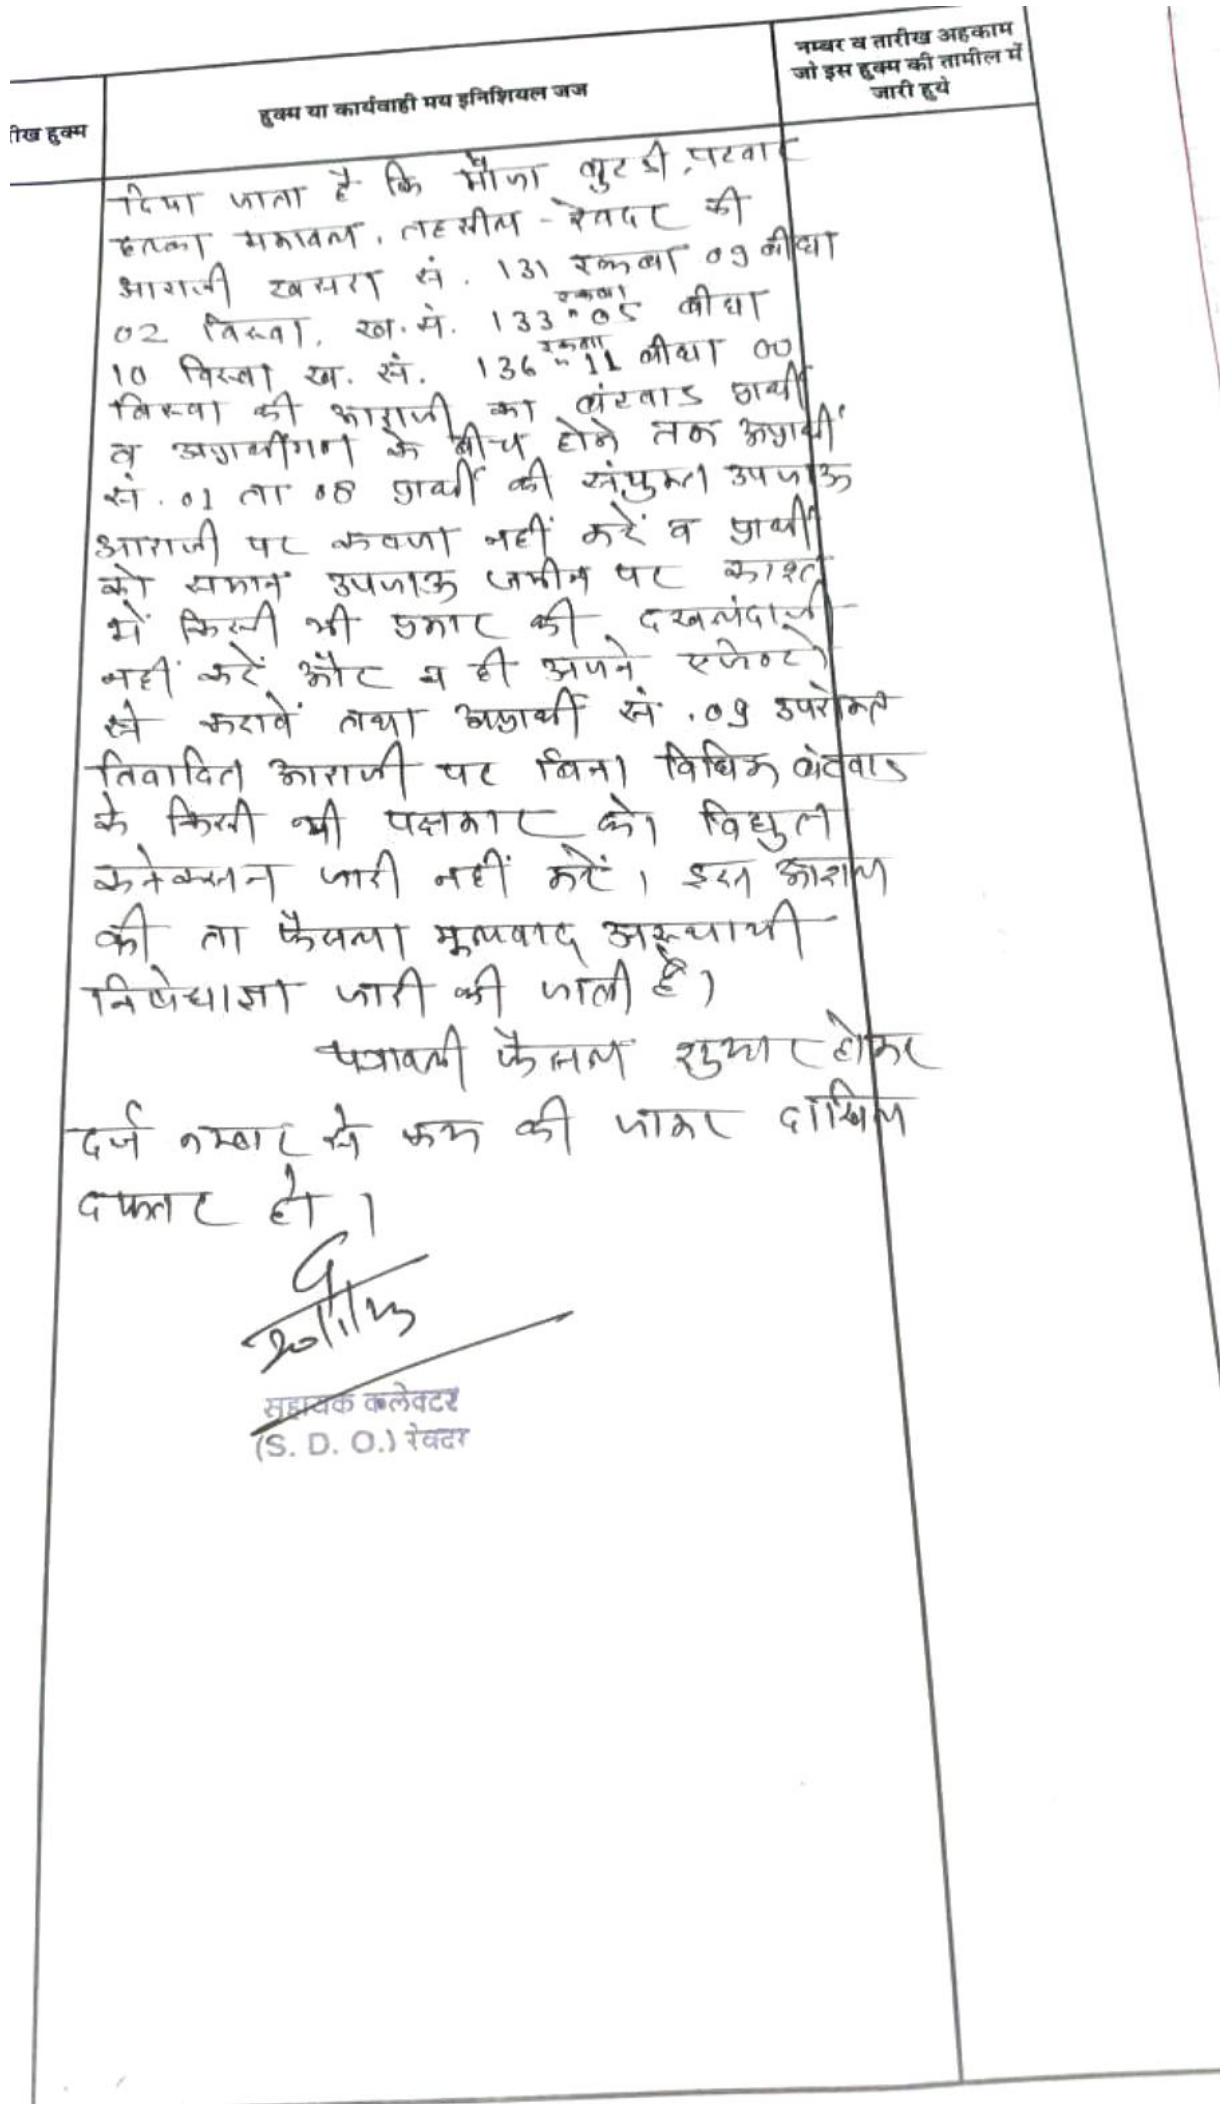 तारीख हुक्म
हुक्म या कार्यवाही मय इनिशियल जज
नम्बर व तारीख अहकाम
जो इस हुक्म की तामील में
जारी हुये
दिया जाता है कि मौजा पटवार
हल्का तहसील - रेवदर की
आराजी खसरा सं. 131 रकबा 09 बीघा
02 बिस्वा, ख.सं. 133 रकबा 05 बीघा
10 बिस्वा ख. सं. 136 रकबा 11 बीघा 00
बिस्वा की आराजी का बंटवाड प्रार्थी
व अप्रार्थीगण के बीच होने तक अप्रार्थी
सं. 01 ता 08 प्रार्थी की संयुक्त उपजाऊ
आराजी पर कब्जा नहीं करें व प्रार्थी
को समान उपजाऊ जमीन पर काश्त
में किसी भी प्रकार की दखलंदाजी
नहीं करें और न ही अपने एजेन्टो
से करावें तथा अप्रार्थी सं. 09 उपरोक्त
विवादित आराजी पर बिना विधिक बंटवाड
के किसी भी पक्षकार को विद्युत
कनेक्सन जारी नहीं करें। इस आशय
की ता फैसला मूलवाद अस्थायी
निषेधाज्ञा जारी की जाती है।
पत्रावली फैसल शुमार होकर
दर्ज नम्बर से कम की जाकर दाखिल
दफ्तर हो।
सहायक कलेक्टर
(S. D. O.) रेवदर